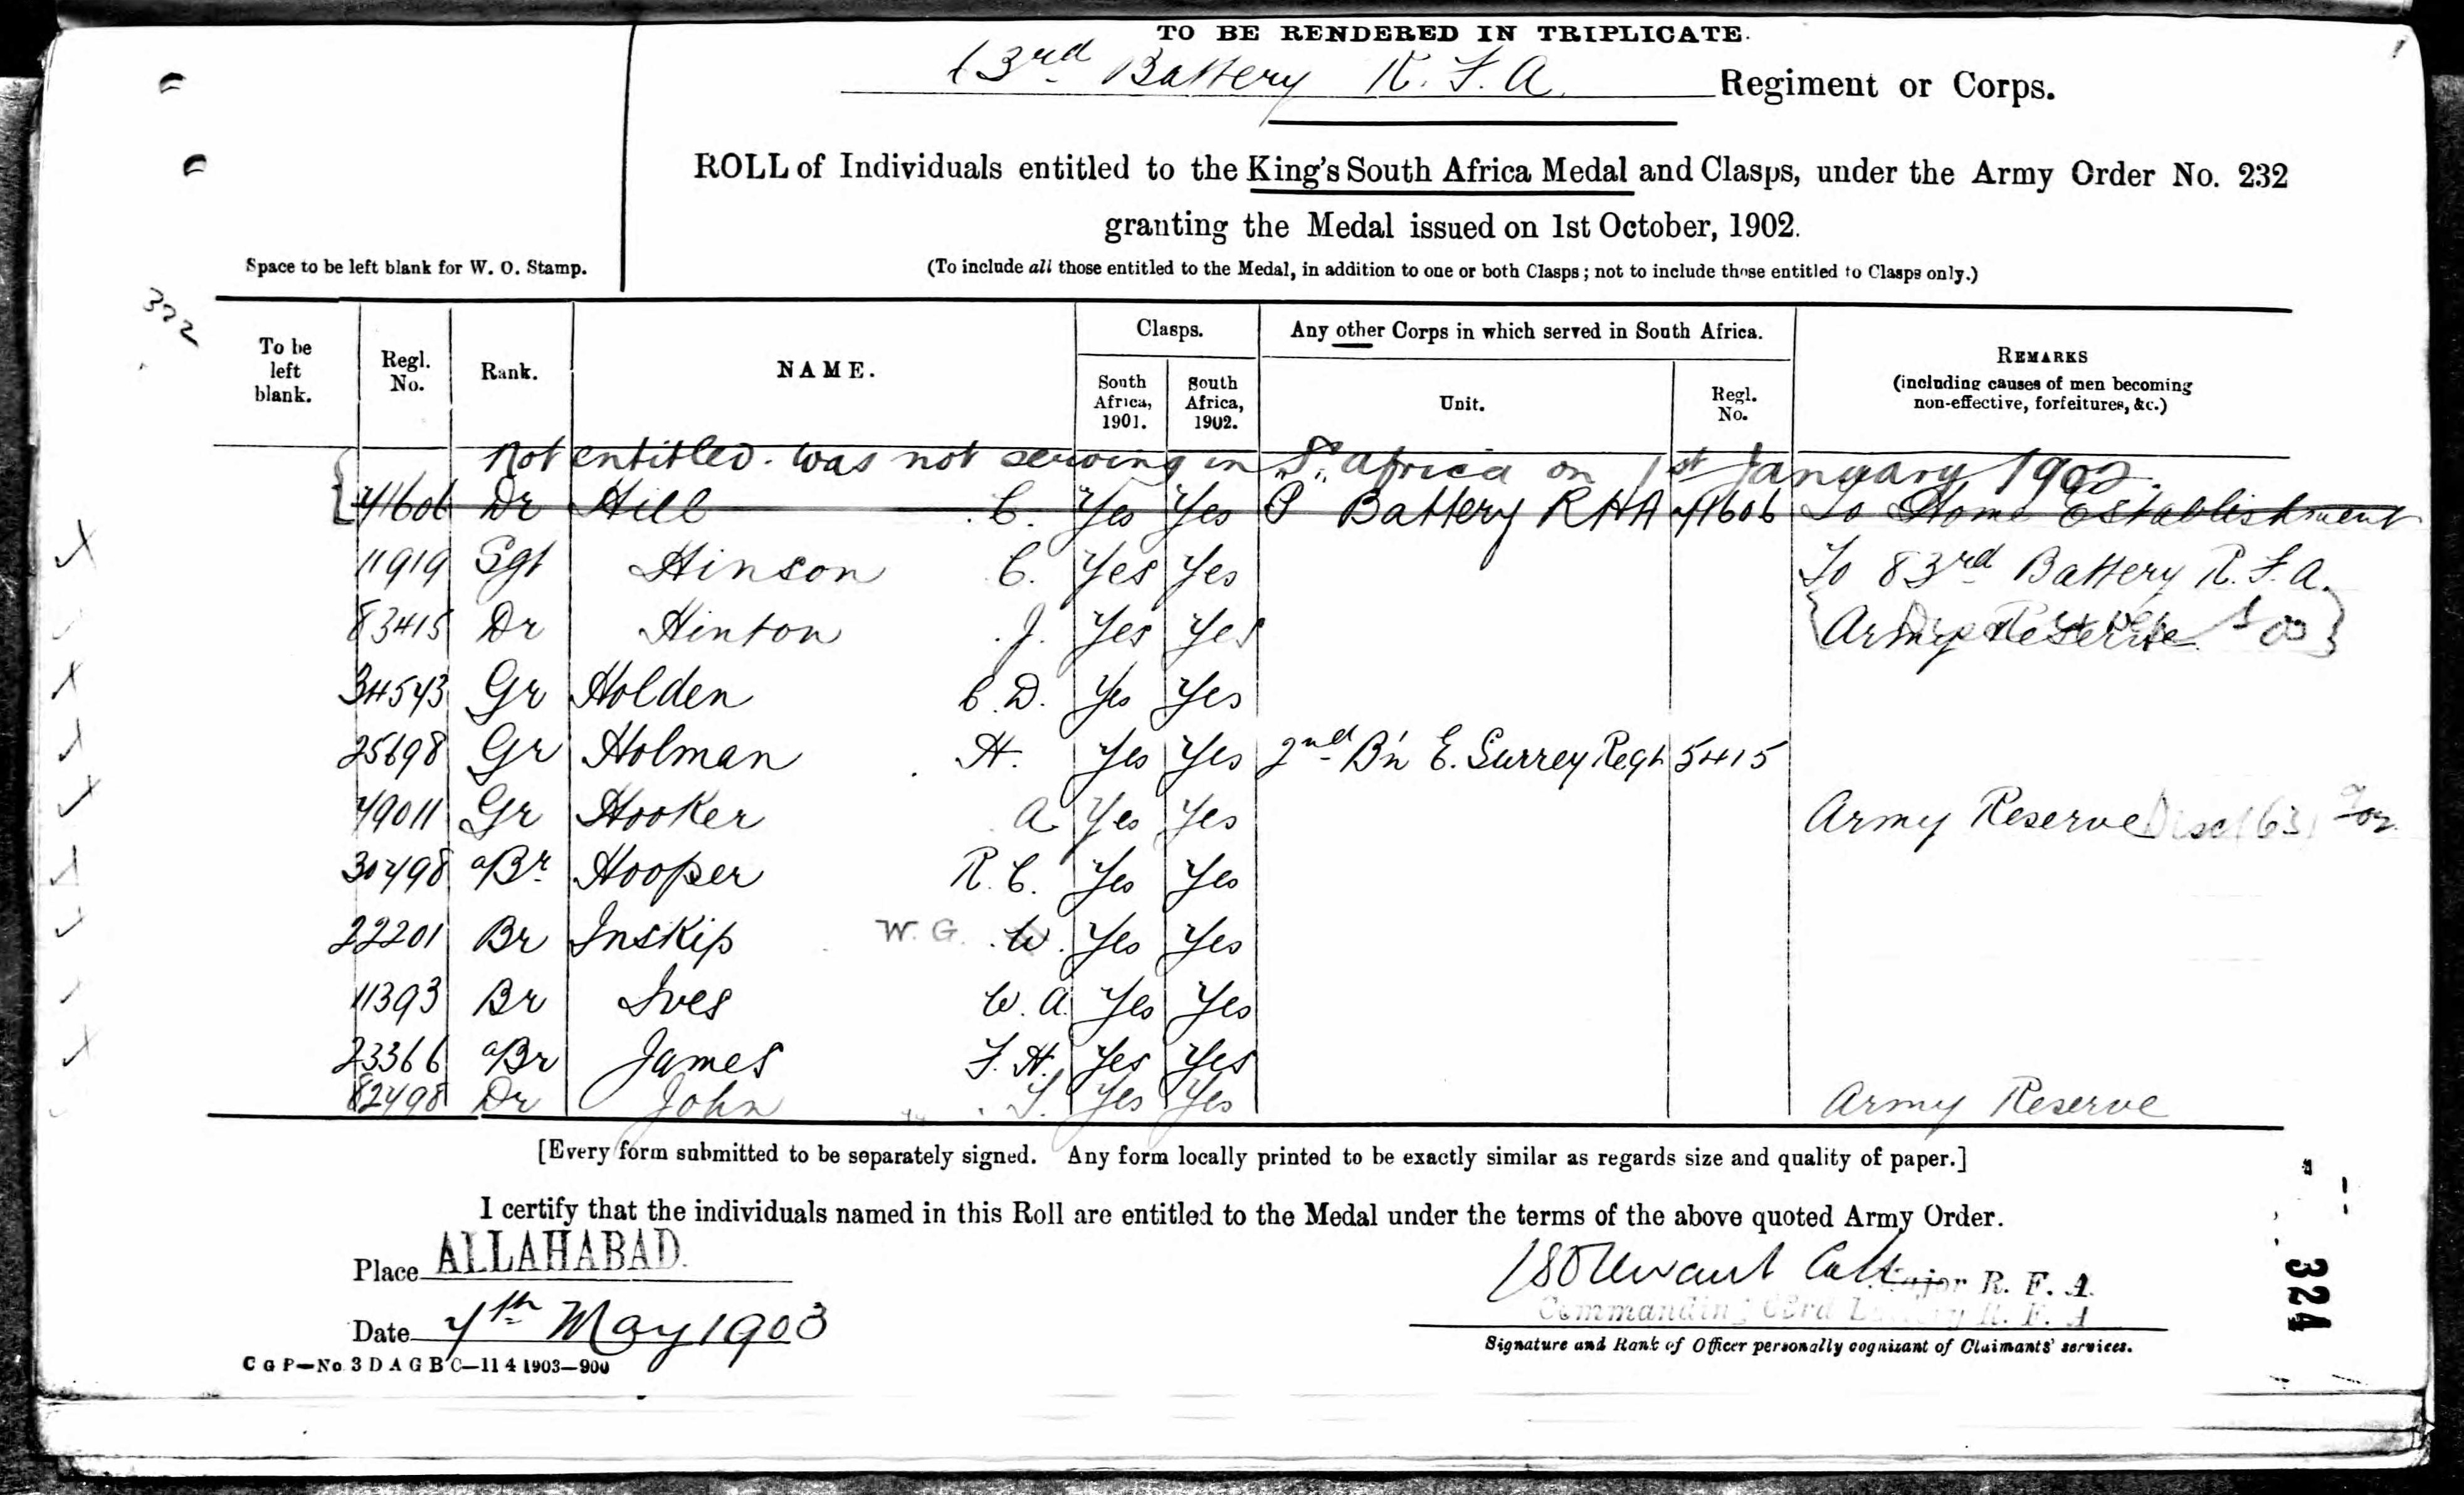 TO BE RENDERED IN TRIPLICATE.
63rd Battery R. F. A. Regiment or Corps.
ROLL of Individuals entitled to the King's South Africa Medal and Clasps, under the Army Order No. 232
granting the Medal issued on 1st October, 1902.
Space to be left blank for W. O. Stamp.
(To include all those entitled to the Medal, in addition to one or both Clasps; not to include those entitled to Clasps only.)
322
To be left blank. Regl. No. Rank. NAME. Clasps. South Africa, 1901. South Africa, 1902. Any other Corps in which served in South Africa. Unit. Regl. No. REMARKS (including causes of men becoming non-effective, forfeitures, &c.)
Not entitled. was not serving in S. Africa on 1st January 1902.
71606 Dr Hill C. Yes Yes P Battery RHA 71606 To Home Establishment
11919 Sgt Hinson C. Yes Yes To 83rd Battery R. F. A.
83415 Dr Hinton J. Yes Yes Army Reserve
34543 Gr Holden C. D. Yes Yes
25698 Gr Holman H. Yes Yes 2nd Bn E. Surrey Regt 5415
79011 Gr Hooker A Yes Yes Army Reserve
30798 a/Br Hooper R. C. Yes Yes
22201 Br Inskip W. G. W. Yes Yes
11393 Br Ives W. A. Yes Yes
23366 a/Br James F. H. Yes Yes
82798 Dr John T. Yes Yes Army Reserve
[Every form submitted to be separately signed. Any form locally printed to be exactly similar as regards size and quality of paper.]
I certify that the individuals named in this Roll are entitled to the Medal under the terms of the above quoted Army Order.
Place ALLAHABAD.
Major R. F. A.
Commanding 63rd Battery R. F. A
Date 7th May 1903
Signature and Rank of Officer personally cognizant of Claimants' services.
C G P—No. 3 D A G B C—11 4 1903—900
324